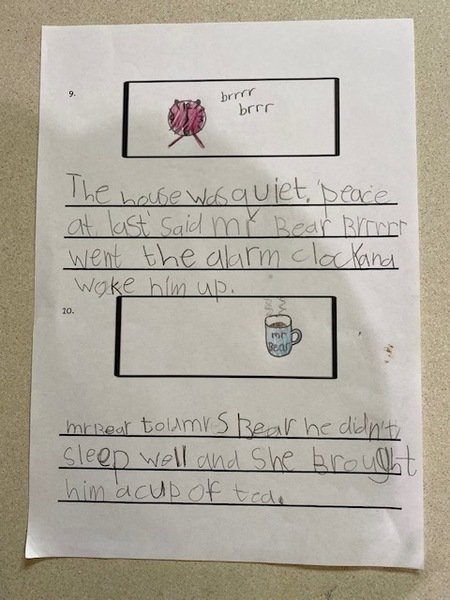 9.
brrrr
brrr
The house was quiet. 'peace
at last' said mr Bear Brrrrr
went the alarm clock and
woke him up.
10.
mr
Bear
mr Bear tou mrs Bear he didn't
sleep well and she brought
him a cup of tea.